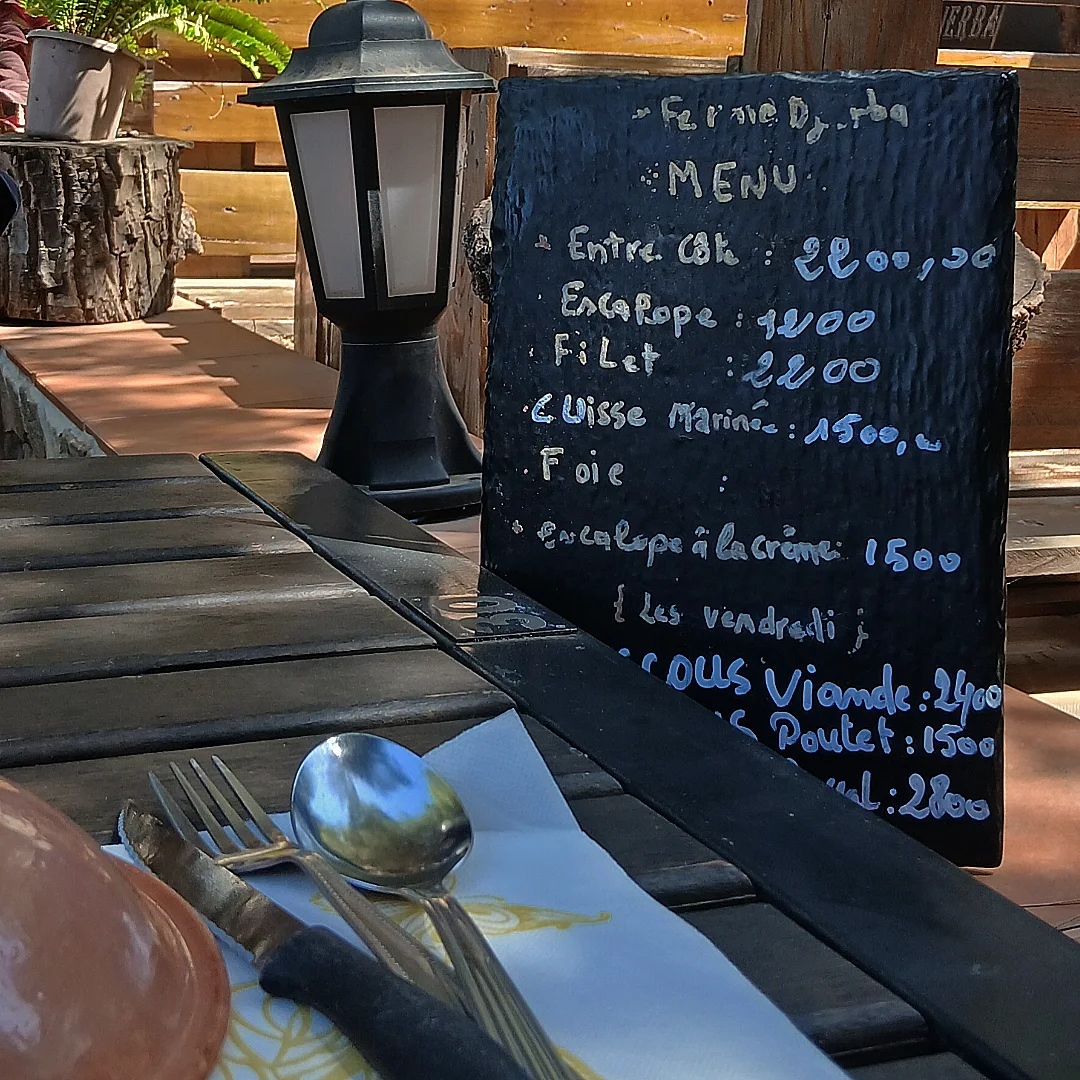 ERBA
Ferme Djerba
MENU
Entre Côte : 2200,00
Escalope : 1200
Filet : 2200
Cuisse Marinée : 1500,00
Foie :
escalope à la crème: 1500
{ Les vendredi }
cous Viande : 2400
Poulet : 1500
: 2800